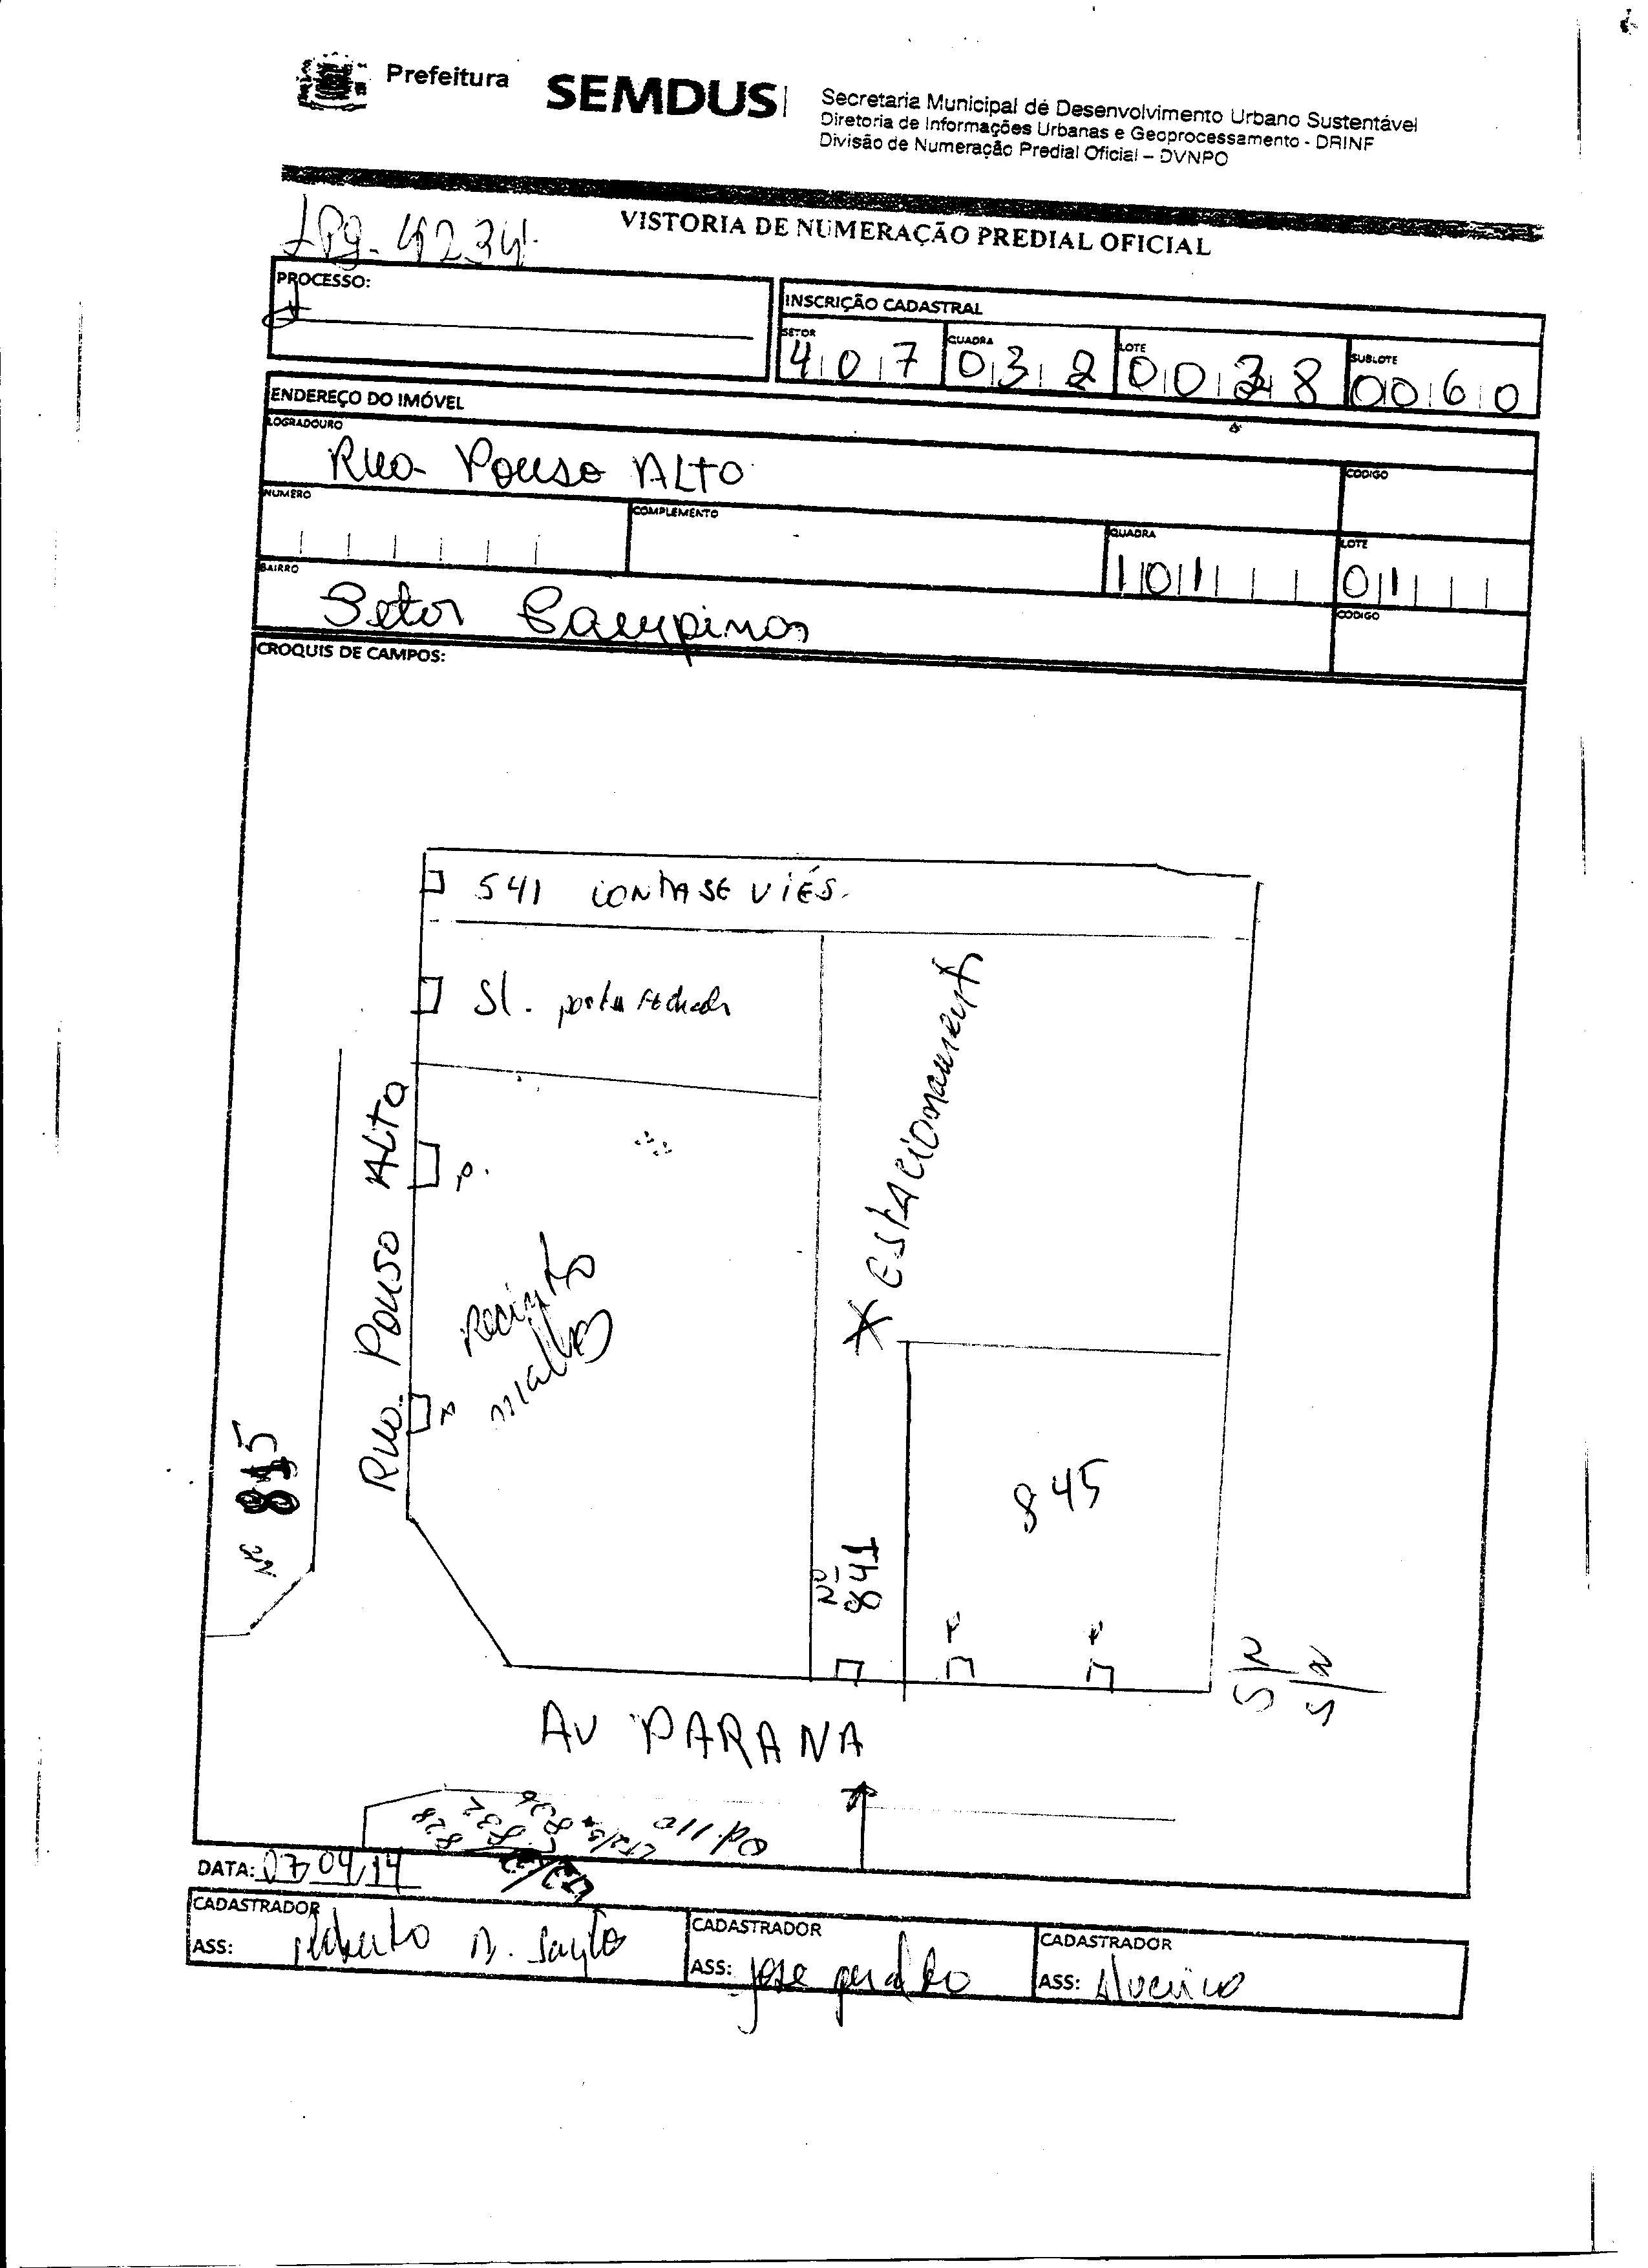 Prefeitura
SEMDUS
Secretaria Municipal de Desenvolvimento Urbano Sustentável
Diretoria de Informações Urbanas e Geoprocessamento - DRINF
Divisão de Numeração Predial Oficial – DVNPO
4234
VISTORIA DE NUMERAÇÃO PREDIAL OFICIAL
PROCESSO:
INSCRIÇÃO CADASTRAL
SETOR QUADRA LOTE SUBLOTE
407 032 0038 0060
ENDEREÇO DO IMÓVEL
LOGRADOURO
Rua Pouso ALTO
CODIGO
NUMERO
COMPLEMENTO
QUADRA
101
LOTE
01
BAIRRO
Setor Campinas
CODIGO
CROQUIS DE CAMPOS:
541
VIÉS.
Sl. porta fechada
* Estacionamento
Rua Pouso ALTO
Recinto
malhas
Nº 815
845
Nº 841
P
P
S/N
S/N
AV PARANA
828
832
836
Qd 112
DATA: 07/04/14
CADASTRADOR
ASS: Roberto
CADASTRADOR
ASS: jose geraldo
CADASTRADOR
ASS: